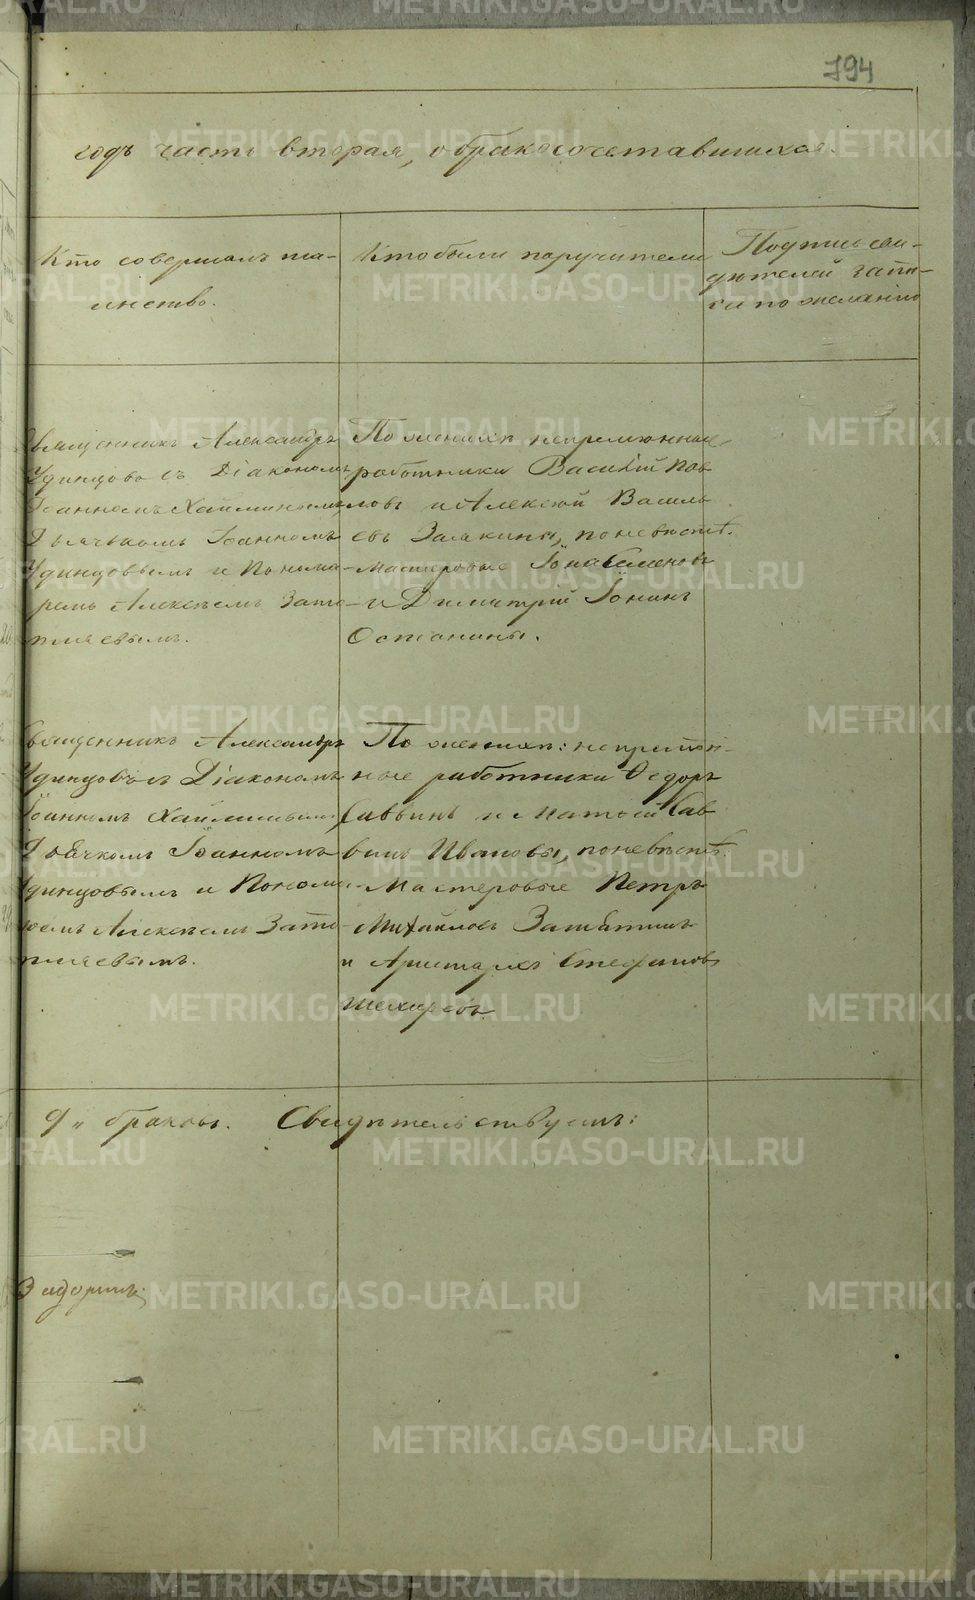 194
годъ часть вторая, о бракосочетавшихся.
Кто совершалъ та-
инство.
Кто были поручители
Подпись сви-
дѣтелей запи-
си по желанію
Священникъ Александръ
Удинцовъ съ Діакономъ
Іоанномъ
Дьячкомъ Іоанномъ
Удинцовымъ и Понома-
ремъ Алексѣемъ Зато-
пляевымъ.
По женихѣ непремѣнные
работники Василій Пав
ловъ и Алексѣй Василь
евъ Залакины, по невѣстѣ.
Мастеровые Іона Семеновъ
и Димитрій Іонинъ
Останины.
Священникъ Александръ
Удинцовъ съ Діакономъ
Іоанномъ
Дьячкомъ Іоанномъ
Удинцовымъ и Понома-
ремъ Алексѣемъ Зато-
пляевымъ.
По женихѣ: непремѣн-
ные работники Ѳедоръ
Саввинъ и Матвей Сав
винъ Ивановы, по невѣстѣ
Мастеровые Петръ
Михайловъ Замятинъ
и Аристархъ Стефановъ
9 „ браковъ. Свидѣтельствуемъ:
METRIKI.GASO-URAL.RU